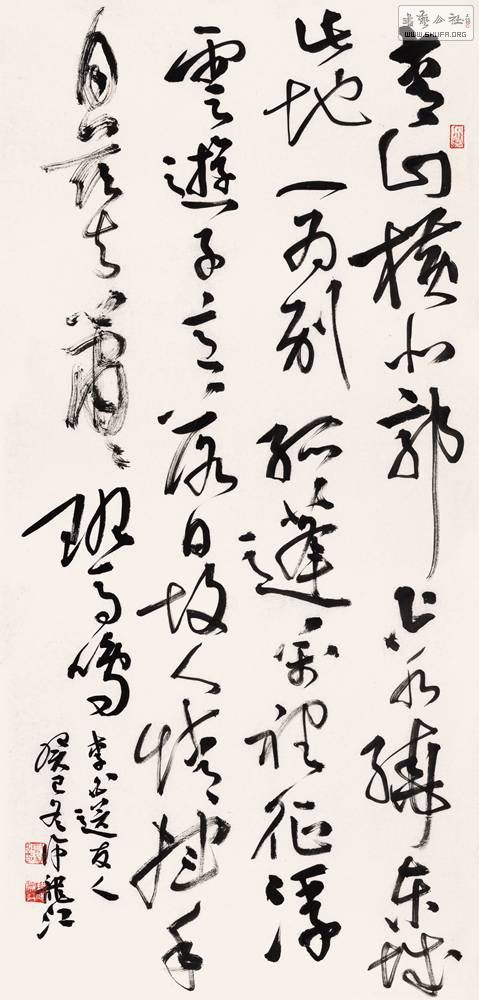 青山橫北郭白水繞東城
此地一為別孤蓬萬裡征浮
雲遊子意落日故人情揮手
自茲去蕭々班馬鳴
李白送友人
癸巳冬許龍江
書藝公社
WWW.SHUFA.ORG